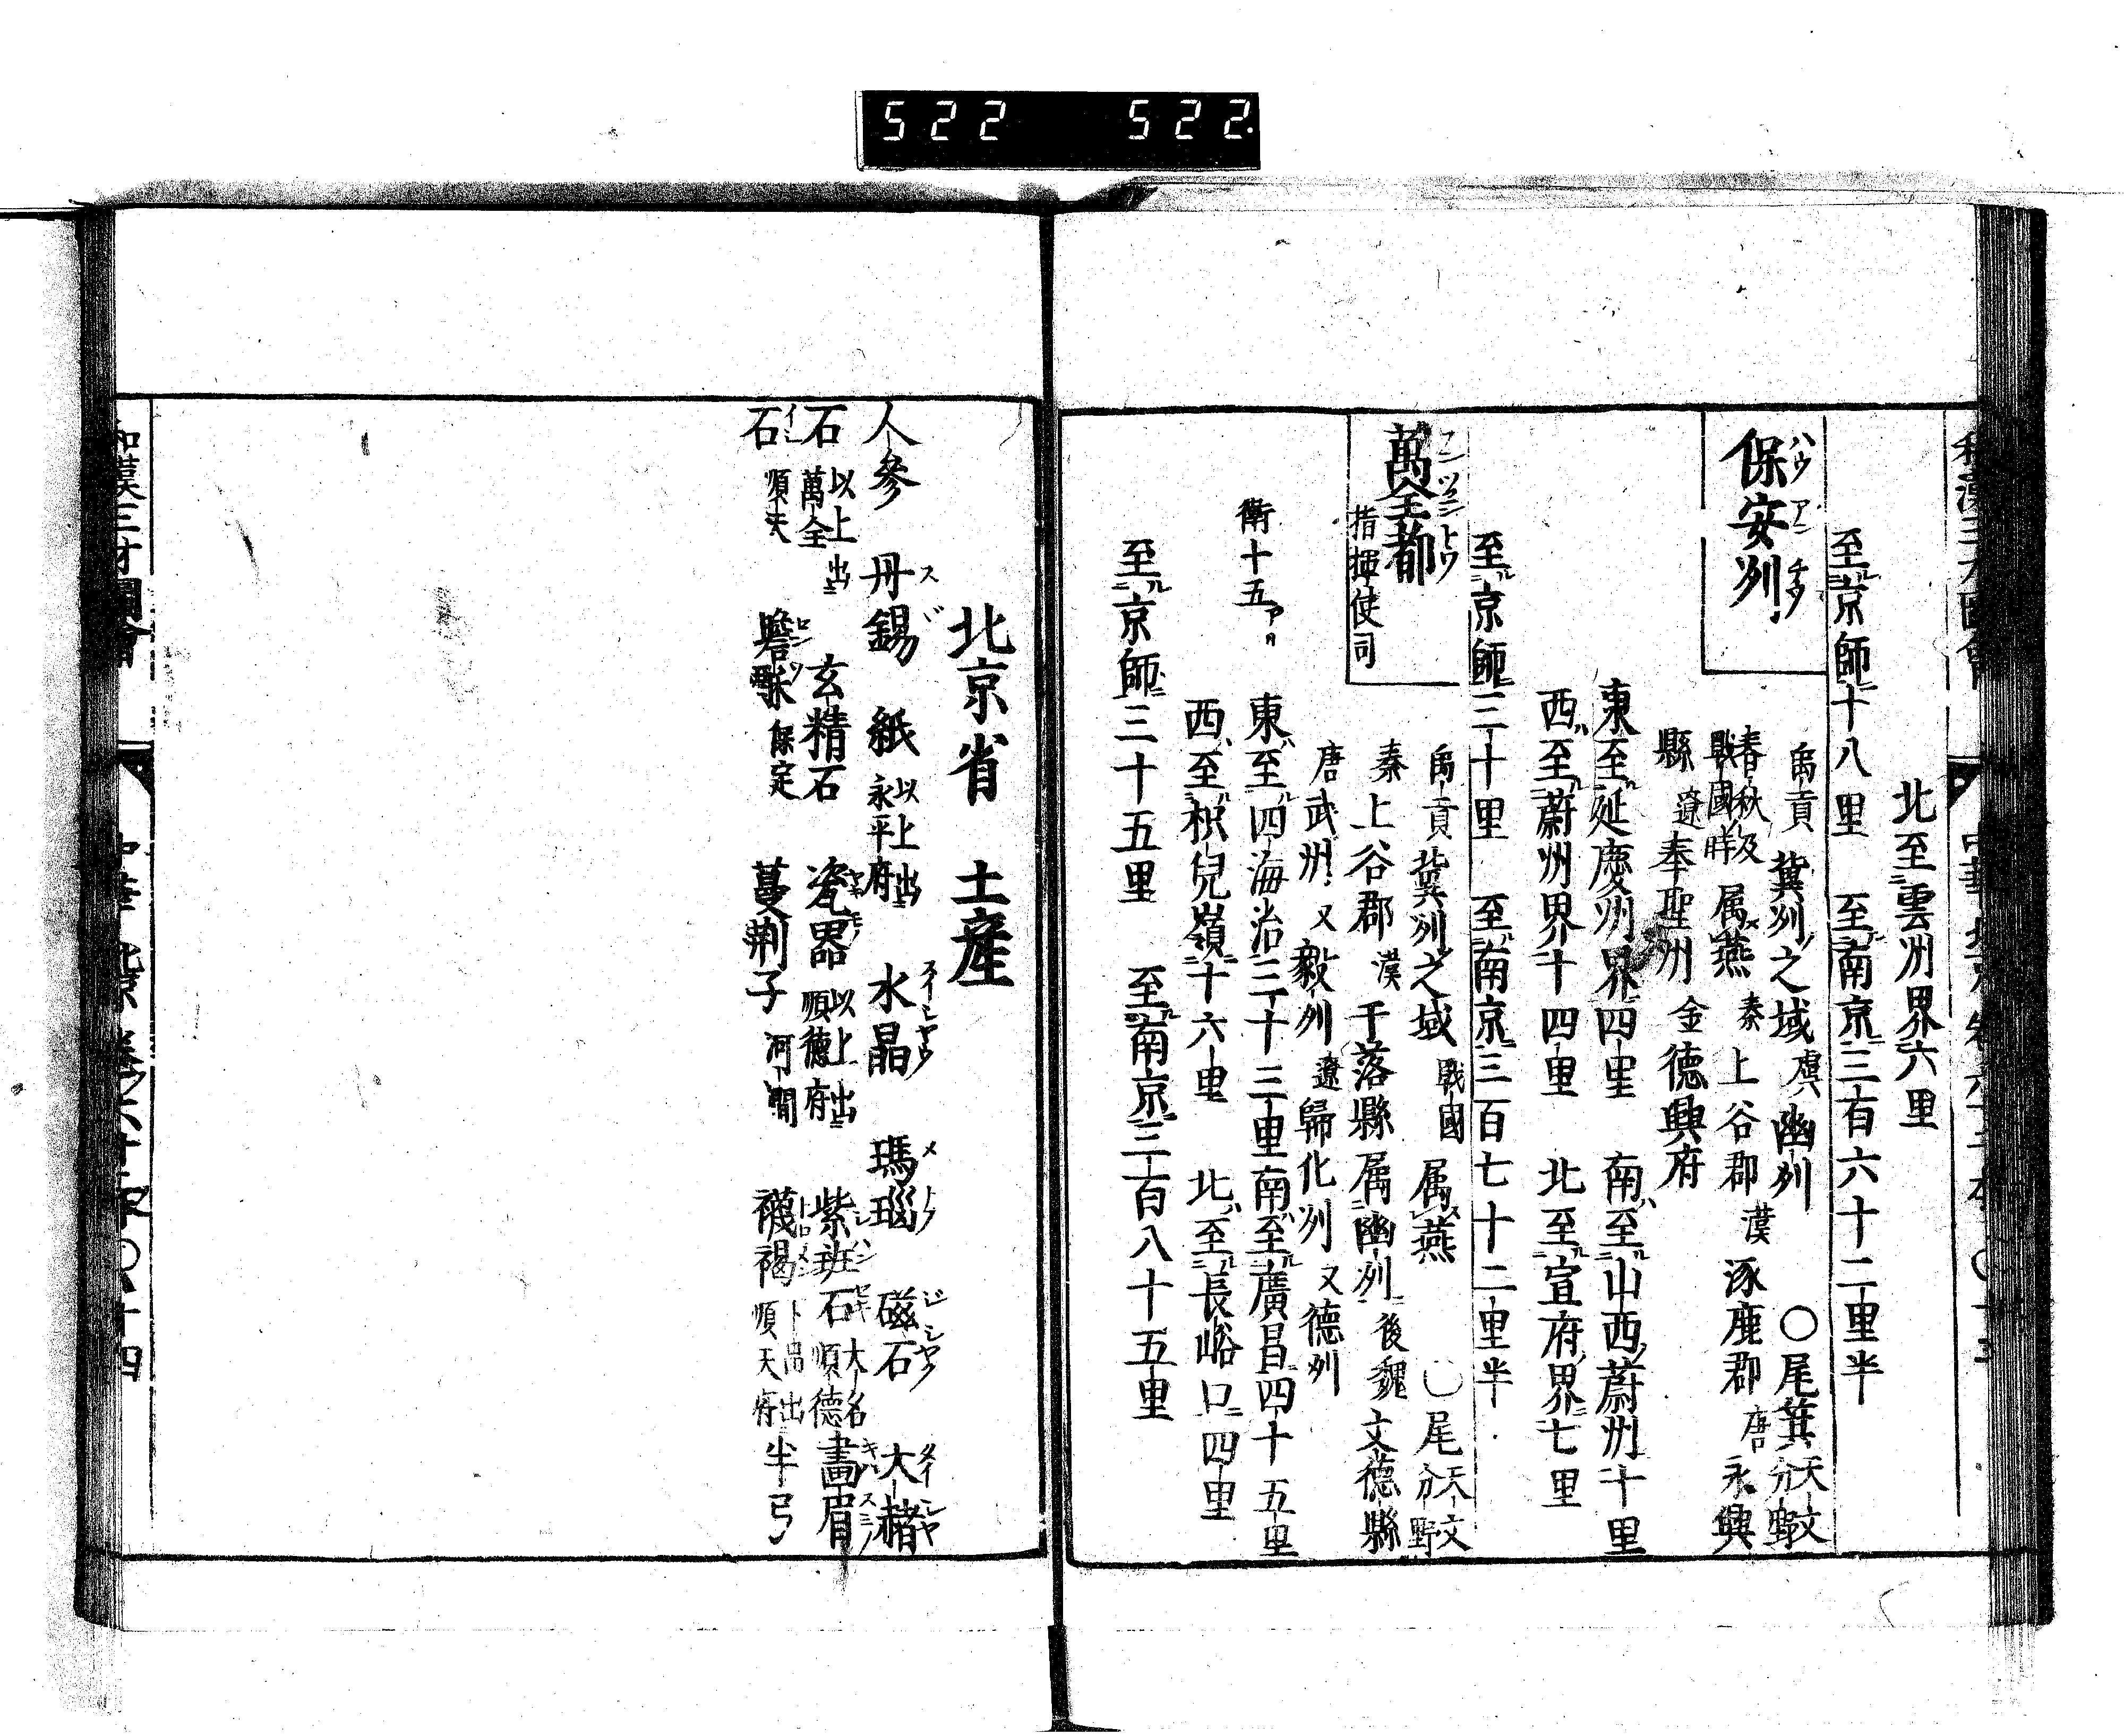 522 522
北至雲洲界六里
至京師十八里 至南京三百六十二里半
保安州
ハウアンチウ
禹貢冀州之域虞幽州 〇尾箕天文分野
春秋及戰國時属燕秦上谷郡漢涿鹿郡唐永興
縣遼奉聖州金德興府
東至延慶州界四里 南至山西蔚州十里
西至蔚州界十四里 北至宣府界七里
至京師三十里 至南京三百七十二里半
萬全都指揮使司
禹貢冀州之域戰國属燕 〇尾天文分野
秦上谷郡漢于落縣属幽州後魏文德縣
唐武州又毅州遼歸化州又德州
衛十五アリ 東至四海治三十三里南至廣昌四十五里
西至枳兒嶺十六里 北至長峪口四里
至京師三十五里 至南京三百八十五里
北京省 土産
人參 丹錫 紙以上出永平府 水晶 瑪瑙 磁石 大赭
石以上出萬全 玄精石 瓷器以上出順德府 紫班石大名順德 畫眉
石順天 蟾酥保定 蔓荆子河間 襪褐 順天府 半弓
和漢三才圖會